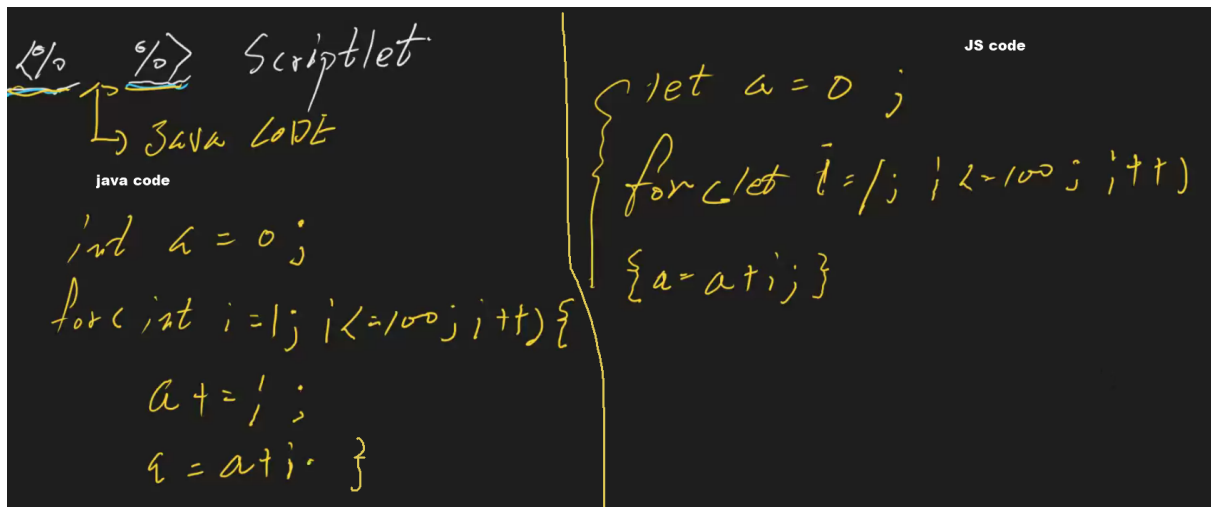 <% %> Scriptlet
Java CODE
java code
int a = 0;
for( int i =1; i<=100; i++){
a += i ;
a = a+i. }
JS code
let a = 0 ;
for(let i=1; i<=100; i++)
{a= a+i;}